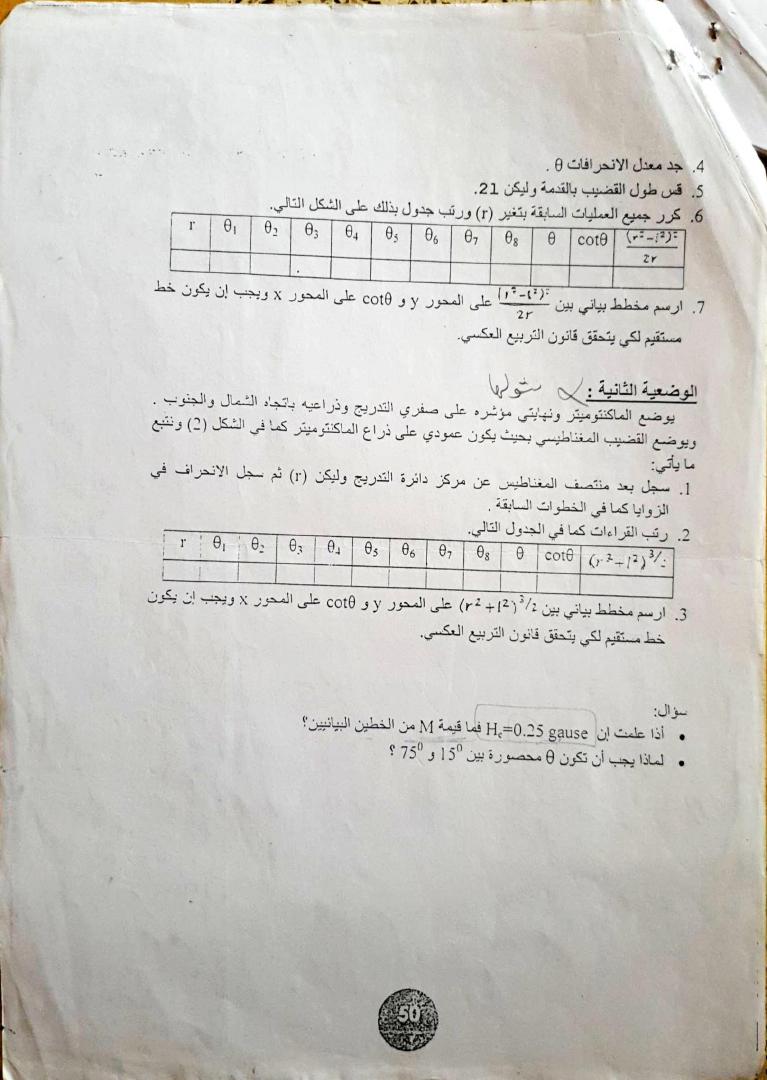 4. جد معدل الانحرافات θ .
5. قس طول القضيب بالقدمة وليكن 21.
6. كرر جميع العمليات السابقة بتغير (r) ورتب جدول بذلك على الشكل التالي.
r θ₁ θ₂ θ₃ θ₄ θ₅ θ₆ θ₇ θ₈ θ cotθ (r²-l²)²/2r
7. ارسم مخطط بياني بين (r²-l²)²/2r على المحور y و cotθ على المحور x ويجب إن يكون خط
مستقيم لكي يتحقق قانون التربيع العكسي.
الوضعية الثانية :
يوضع الماكنتوميتر ونهايتي مؤشره على صفري التدريج وذراعيه باتجاه الشمال والجنوب .
ويوضع القضيب المغناطيسي بحيث يكون عمودي على ذراع الماكنتوميتر كما في الشكل (2) ونتبع
ما يأتي:
1. سجل بعد منتصف المغناطيس عن مركز دائرة التدريج وليكن (r) ثم سجل الانحراف في
الزوايا كما في الخطوات السابقة .
2. رتب القراءات كما في الجدول التالي.
r θ₁ θ₂ θ₃ θ₄ θ₅ θ₆ θ₇ θ₈ θ cotθ (r²+l²)^3/2
3. ارسم مخطط بياني بين (r²+l²)^3/2 على المحور y و cotθ على المحور x ويجب إن يكون
خط مستقيم لكي يتحقق قانون التربيع العكسي.
سؤال:
• أذا علمت إن Hₑ=0.25 gause فما قيمة M من الخطين البيانيين؟
• لماذا يجب أن تكون θ محصورة بين 15⁰ و 75⁰ ؟
50